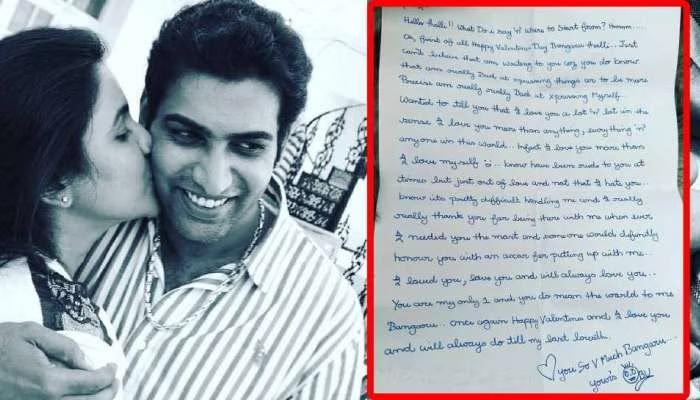 Hello thalli!! What Do i say 'n' where to Start from? Hmmm....
Oh, first of all Happy Valentines Day Bangaru thalli... Just
can't believe that am writing to you coz you do know
that am really Bad at xpressing things or to be more
Precise am really really Bad at xpressing Myself..
Wanted to tell you that I love you a lot 'n' lot in the
sense I love you more than anything, everything 'n'
anyone in this World.. Infact I love you more than
I love myself .. know have been rude to you at
times but just out of love and not that I hate you..
know its pretty difficult handling me and I really
really thank you for being there with me when ever
I needed you the most and someone would definitely
honour you with an oscar for putting up with me..
I loved you, love you and will always love you..
You are my only 1 and you do mean the world to me
Bangaru.. once again Happy Valentines and I love you
and will always do till my last breath..
you So V Much Bangaru...
yours